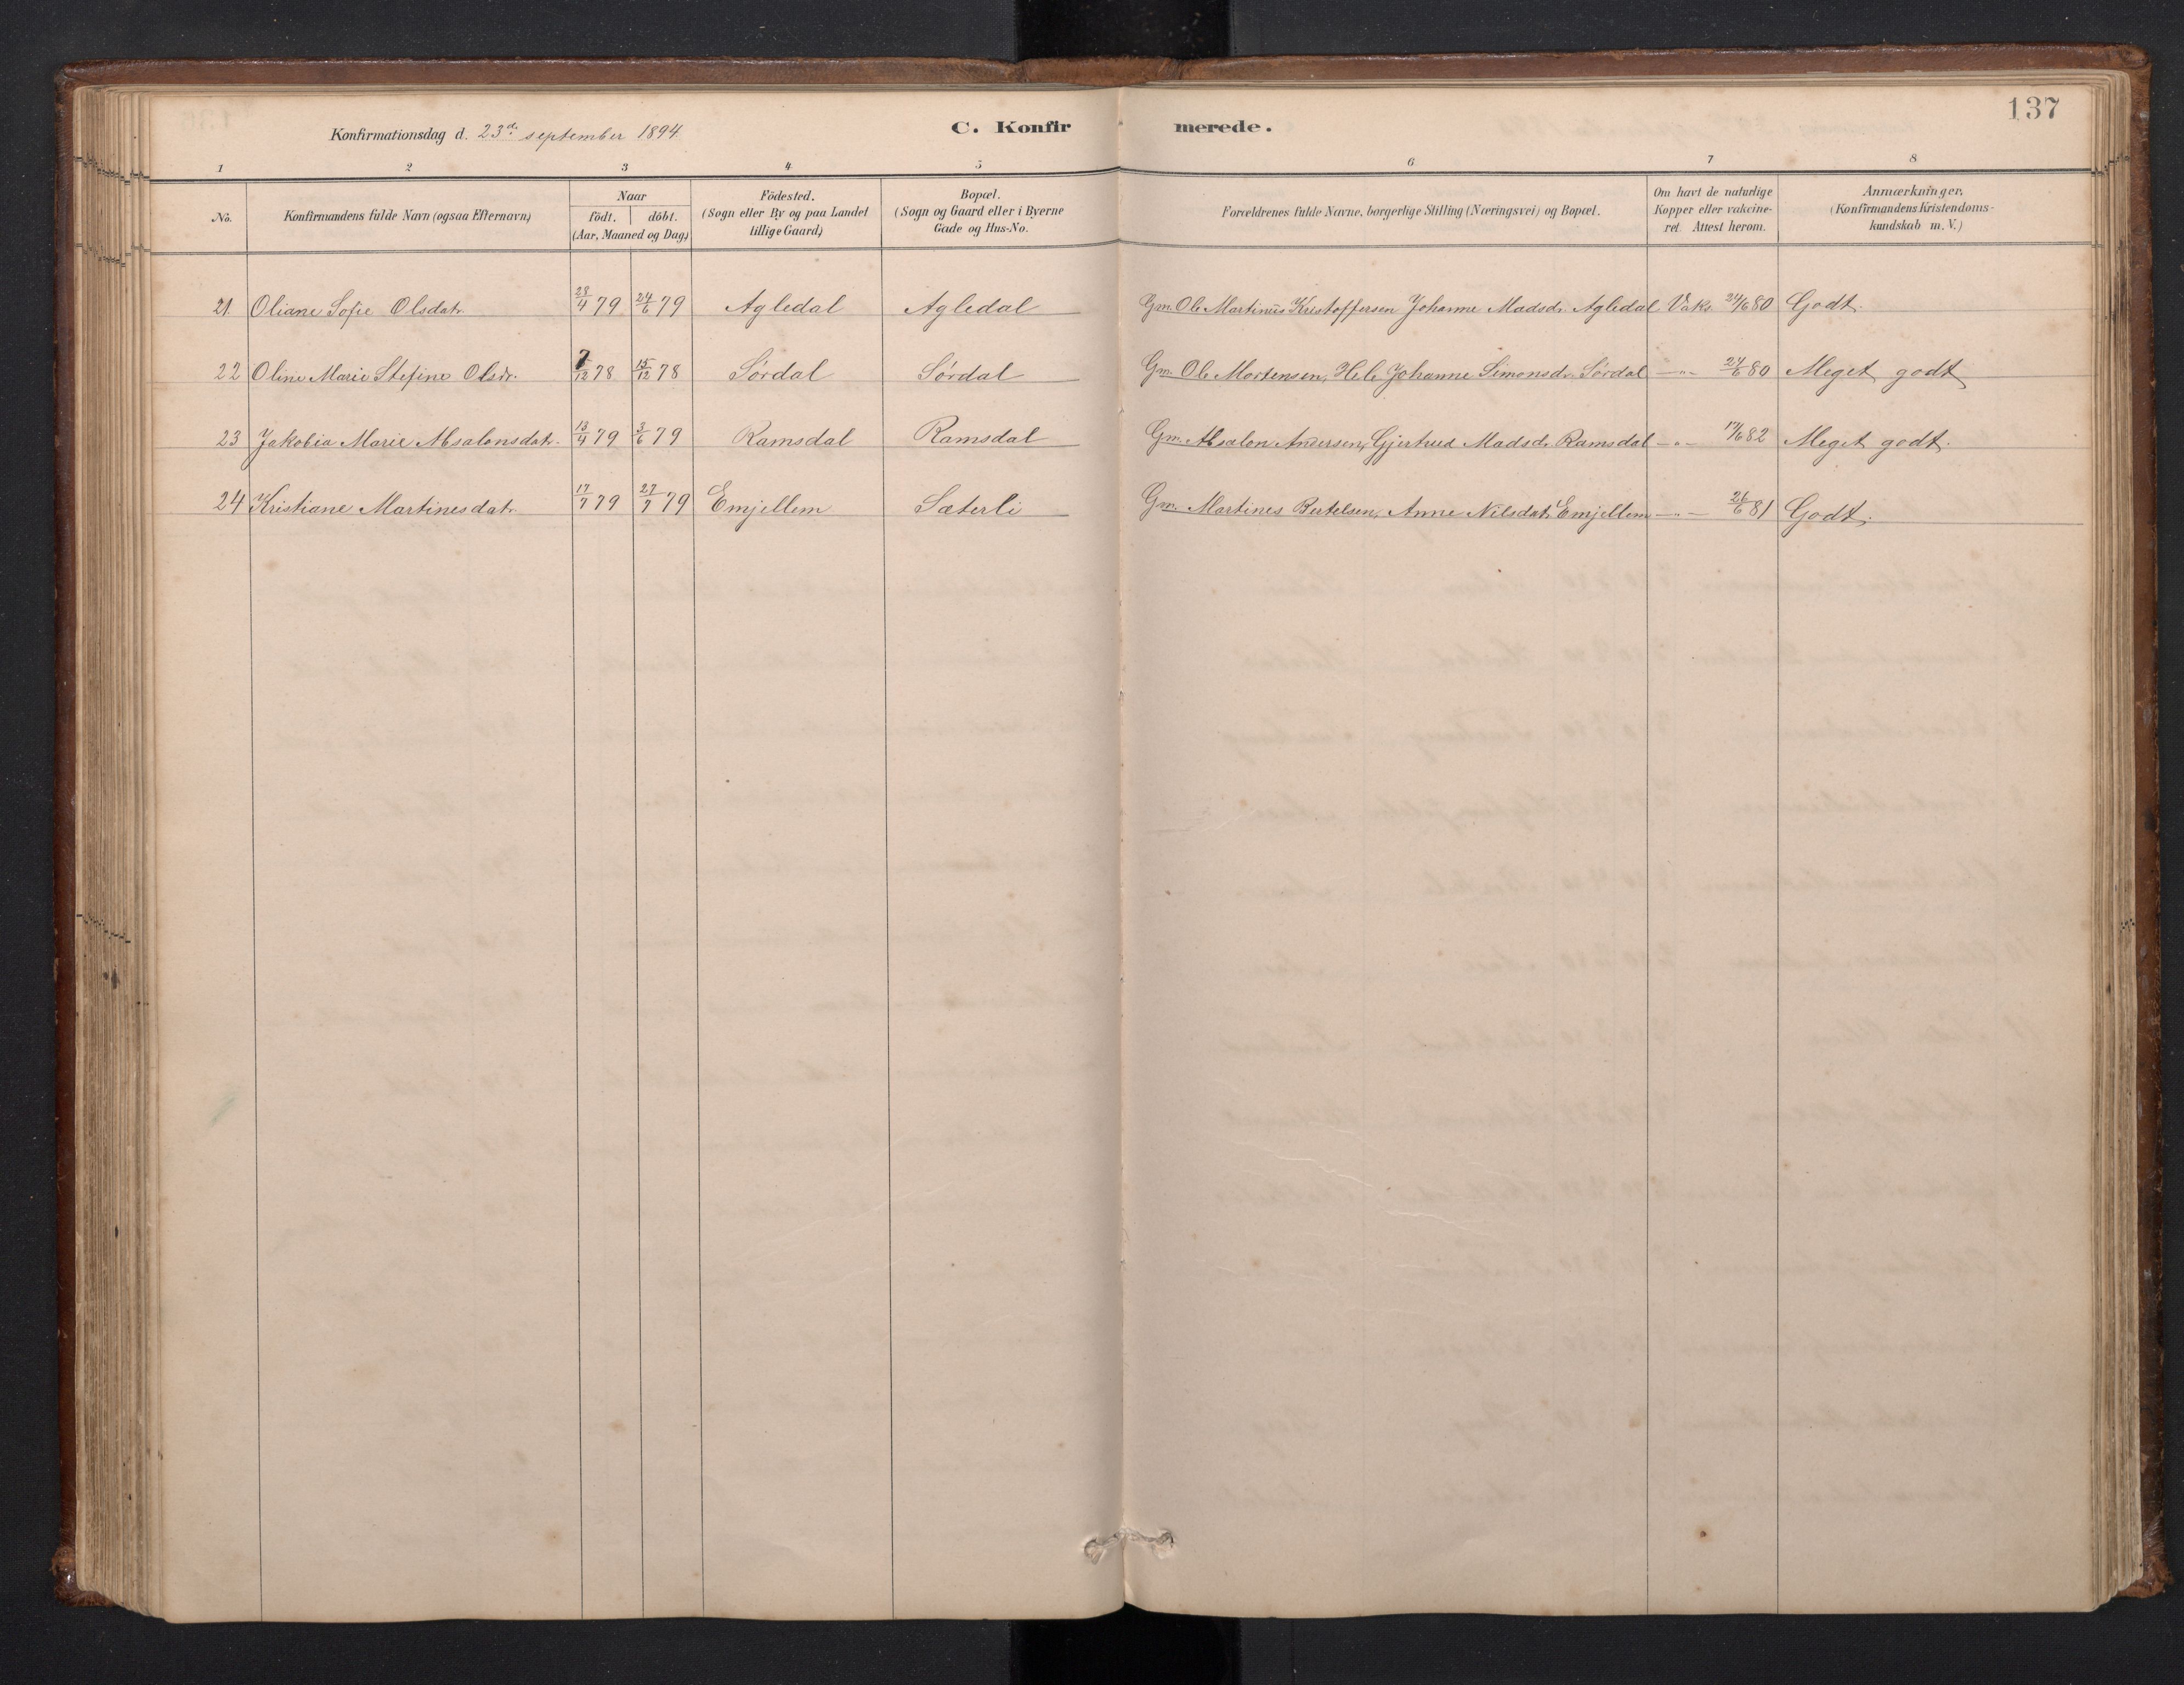 137
Konfirmationsdag d. 23d. september 1894. C. Konfirmerede.
1 2 3 4 5 6 7 8
No. Konfirmandens fulde Navn (ogsaa Efternavn) Naar födt. döbt. (Aar, Maaned og Dag) Födested. (Sogn eller By og paa Landet tillige Gaard) Bopæl. (Sogn og Gaard eller i Byerne Gade og Hus-No. Forældrenes fulde Navne, borgerlige Stilling (Næringsvei) og Bopæl. Om havt de naturlige Kopper eller vakcineret. Attest herom. Anmærkninger. (Konfirmandens Kristendomskundskab m.V.)
21 Oliane Sofie Olsdatr. 28/4 79 24/6 79 Agledal Agledal Gm. Ole Martinus Kristoffersen Johanne Madsdr. Agledal Vaks. 24/6 80 Godt.
22 Oline Marie Stefine Olsdr. 7/12 78 15/12 78 Sørdal Sørdal Gm. Ole Mortensen, Hele Johanne Simonsdr. Sørdal —"— 24/6 80 Meget godt
23 Jakobia Marie Absalonsdatr. 13/4 79 3/6 79 Ramsdal Ramsdal Gm. Absalon Andersen, Gjertrud Madsdr. Ramsdal —"— 17/6 82 Meget godt.
24 Kristiane Martinesdatr. 17/7 79 27/7 79 Emjellem Sæterli Gm. Martines Bertelsen, Anne Nilsdatr. Emjellem —"— 26/6 81 Godt.